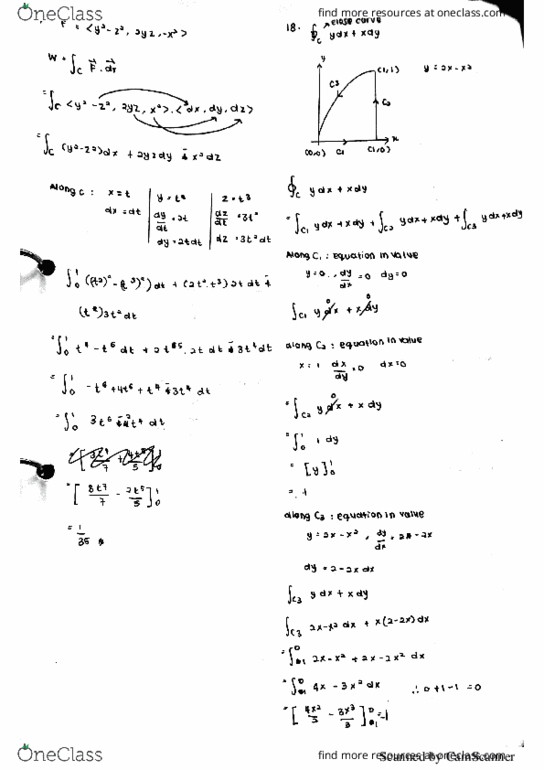 OneClass
find more resources at oneclass.com
F = <y² - z², 2yz, -x²>
W = ∫C F . dr
= ∫C <y² - z², 2yz, x²> . <dx, dy, dz>
= ∫C (y² - z²)dx + 2yzdy - x²dz
Along C : x = t
dx = dt
y = t²
dy/dt = 2t
dy = 2tdt
z = t³
dz/dt = 3t²
dz = 3t² dt
(t²) 3t² dt
= ∫0 1 3t⁶ - 2t⁴ dt
= 1/35
18. ∮C ydx + xdy
close curve
y
C3
(1,1)
y = 2x - x²
C2
x
(0,0)
C1
(1,0)
∮C ydx + xdy
= ∫C1 ydx + xdy + ∫C2 ydx + xdy + ∫C3 ydx + xdy
Along C1 : equation in value
y = 0 . dy/dx = 0 dy = 0
∫C1 y dx + x dy
0
along C2 : equation in value
x = 1 dx/dy = 0 dx = 0
= ∫C2 y dx + x dy
0
= ∫0 1 1 dy
= [y]0 1
= 1
along C3 : equation in value
y = 2x - x² , dy/dx = 2 - 2x
dy = 2 - 2x dx
∫C3 y dx + x dy
∫C3 2x - x² dx + x(2 - 2x) dx
= ∫1 0 2x - x² + 2x - 2x² dx
= ∫1 0 4x - 3x² dx
∴ 0 + 1 - 1 = 0
OneClass
find more resources at oneclass.com
Scanned by CamScanner